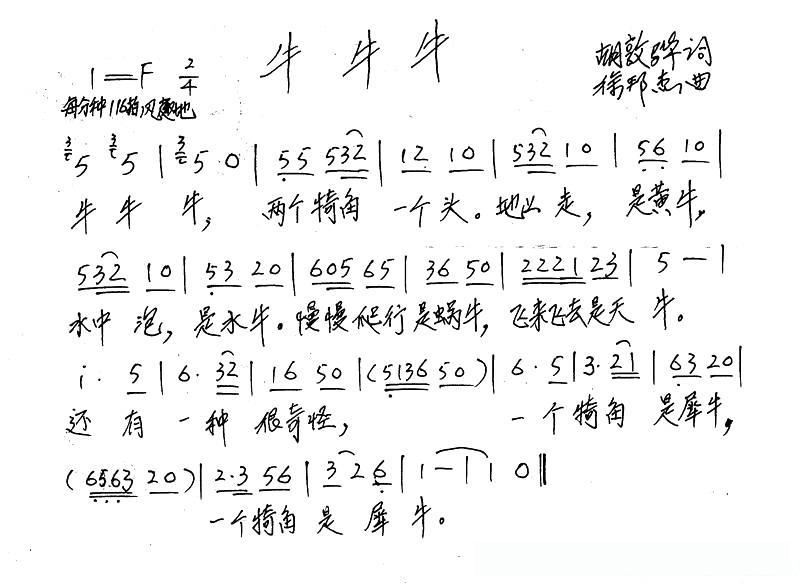 牛 牛 牛
1=F 2/4
胡敦骅词
徐邦杰曲
每分钟116拍 风趣地
3 5 3 5 | 3 5 0 | 55 532 | 12 10 | 532 10 | 56 10 |
牛 牛 牛, 两个犄角 一个头。地上 走, 是黄牛,
532 10 | 53 20 | 605 65 | 36 50 | 2221 23 | 5 — |
水中 泡, 是水牛。慢慢爬行是蜗牛, 飞来飞去是天 牛。
i· 5 | 6· 32 | 16 50 | (5136 50) | 6· 5 | 3· 21 | 63 20 |
还 有 一 种 很奇怪, 一 个犄角 是犀牛,
(6563 20) | 2·3 56 | 3 2 6 | 1 — | 1 0 ‖
一个犄角 是 犀 牛。